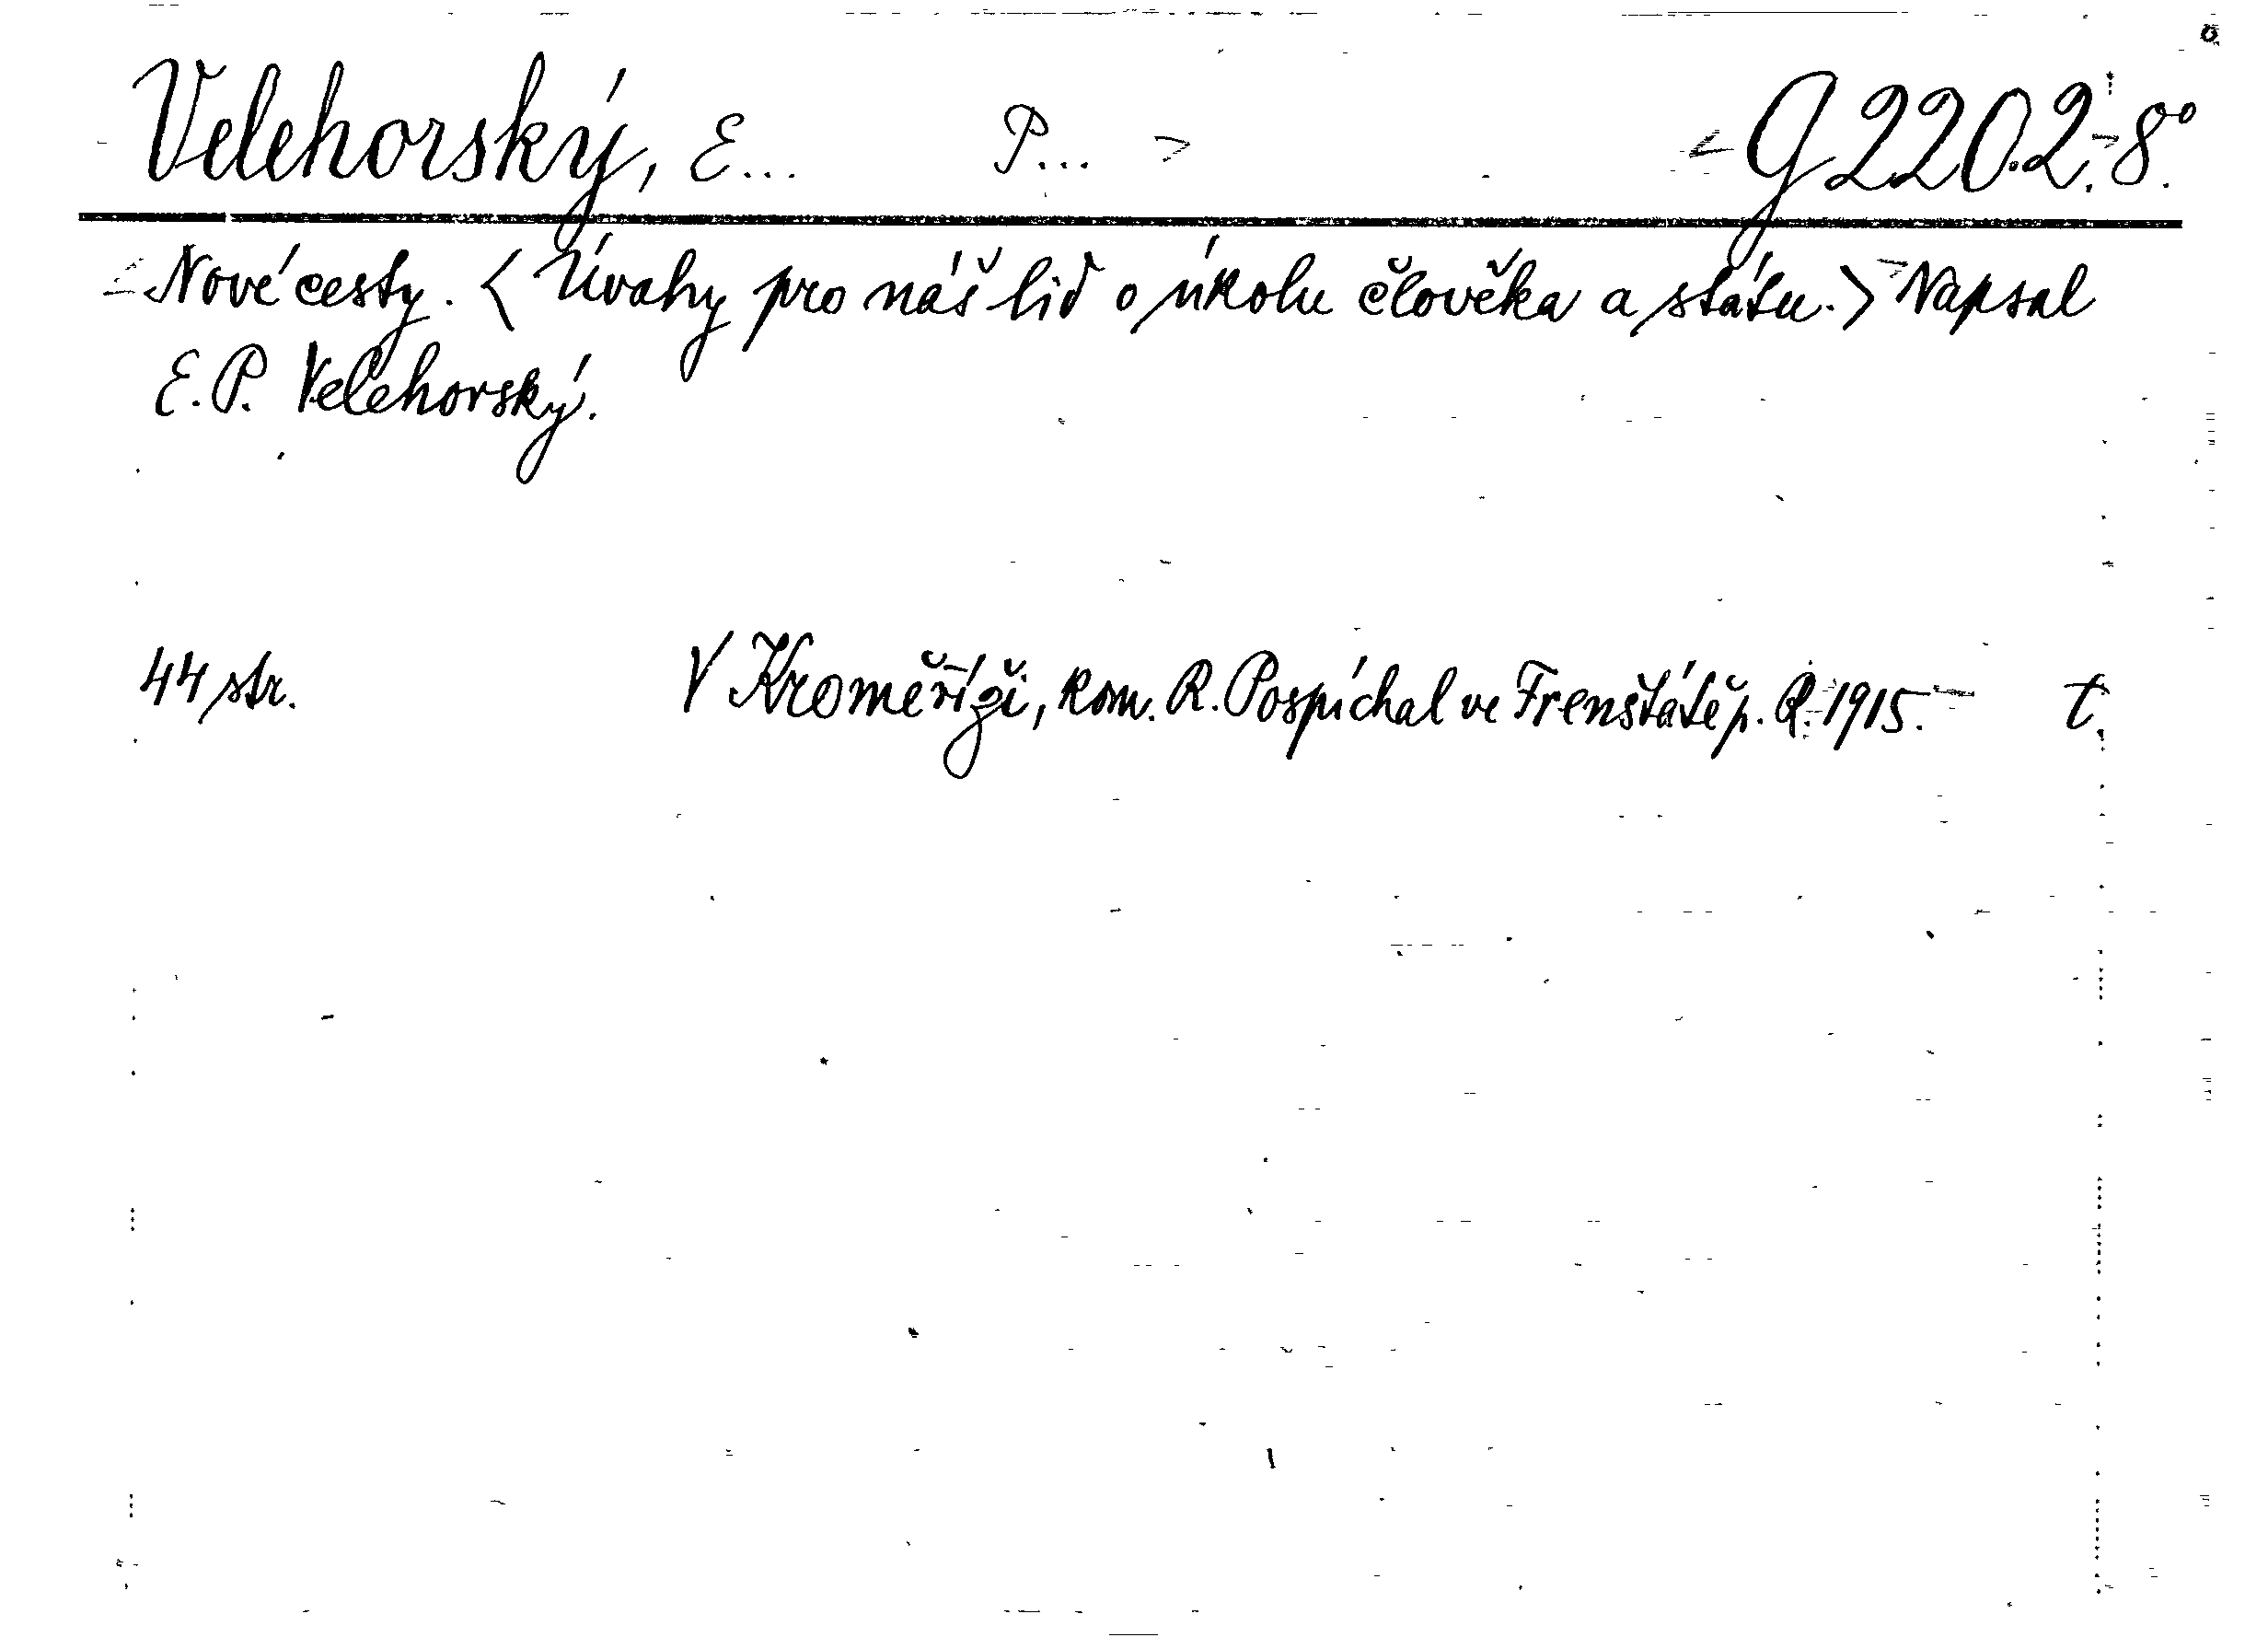 Velehorský, E... P... G 220.2. 8°.
Nové cesty. < Úvahy pro náš lid o úkolu člověka a státu. > Napsal
E. P. Velehorský.
44 str. V Kroměříži, kom. R. Pospíchal ve Frenštátě p. R. 1915. t.